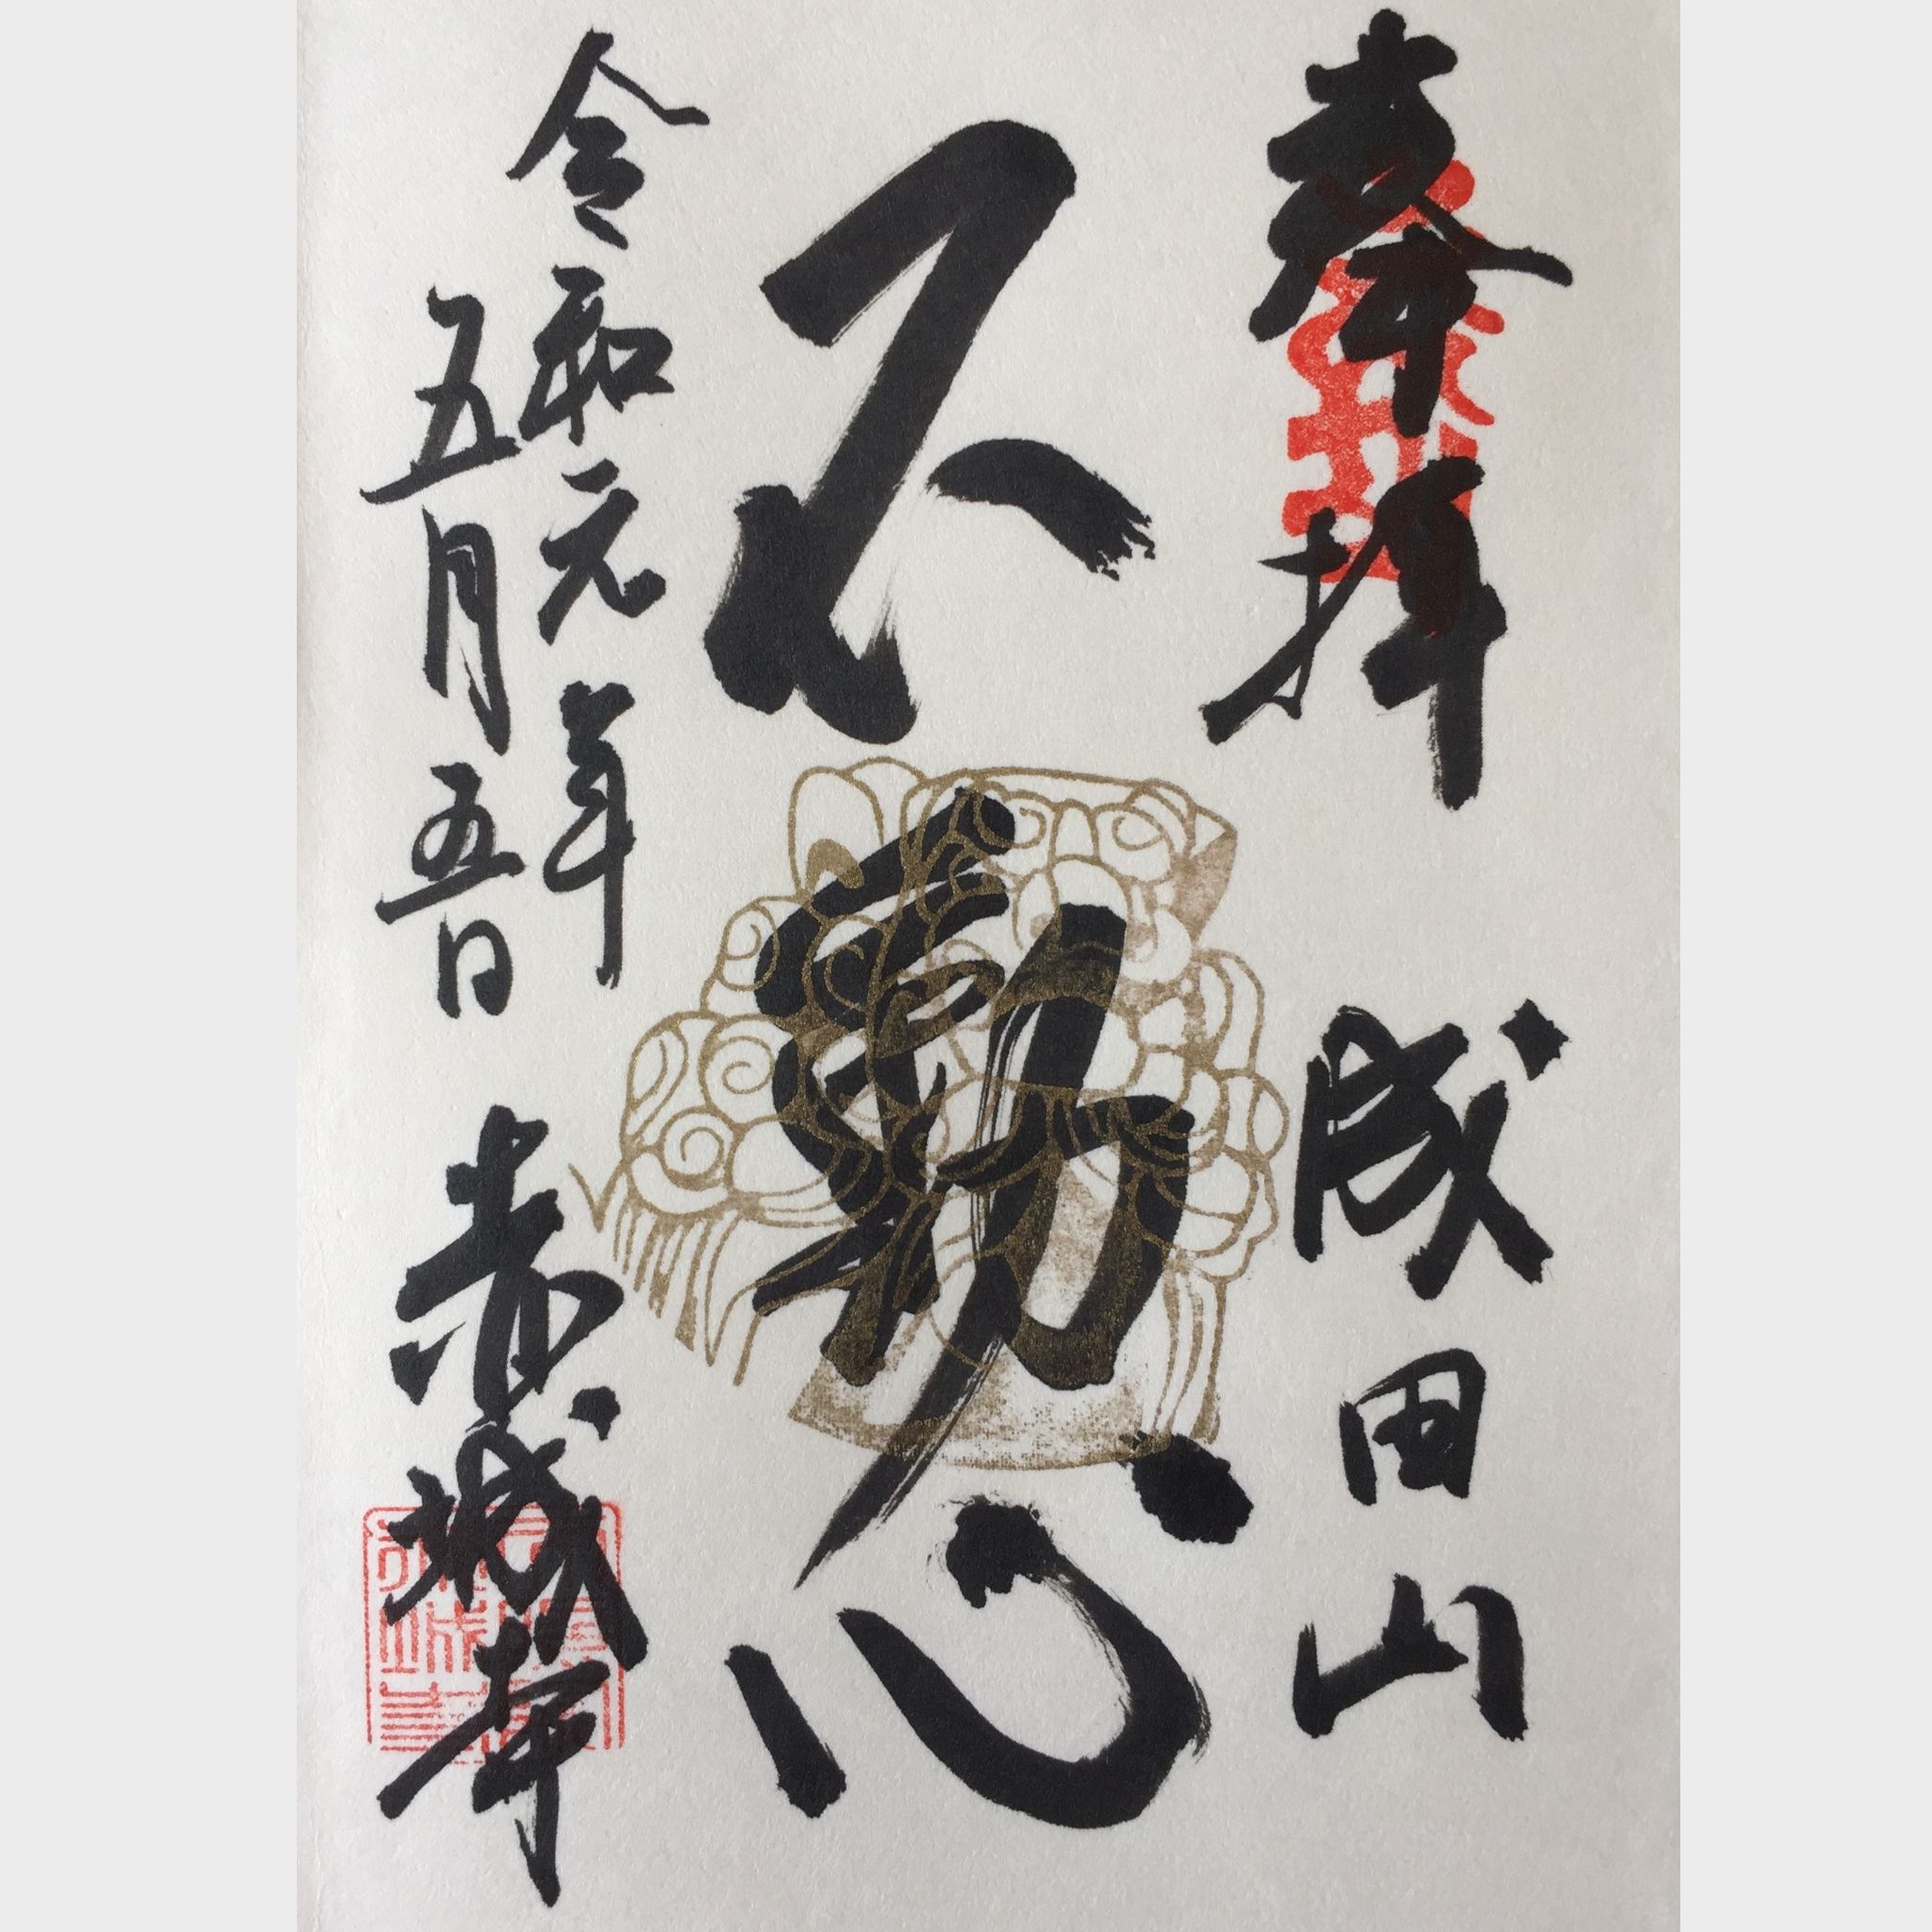 奉拝 成田山
不動心
令和元年
五月五日 赤城寺